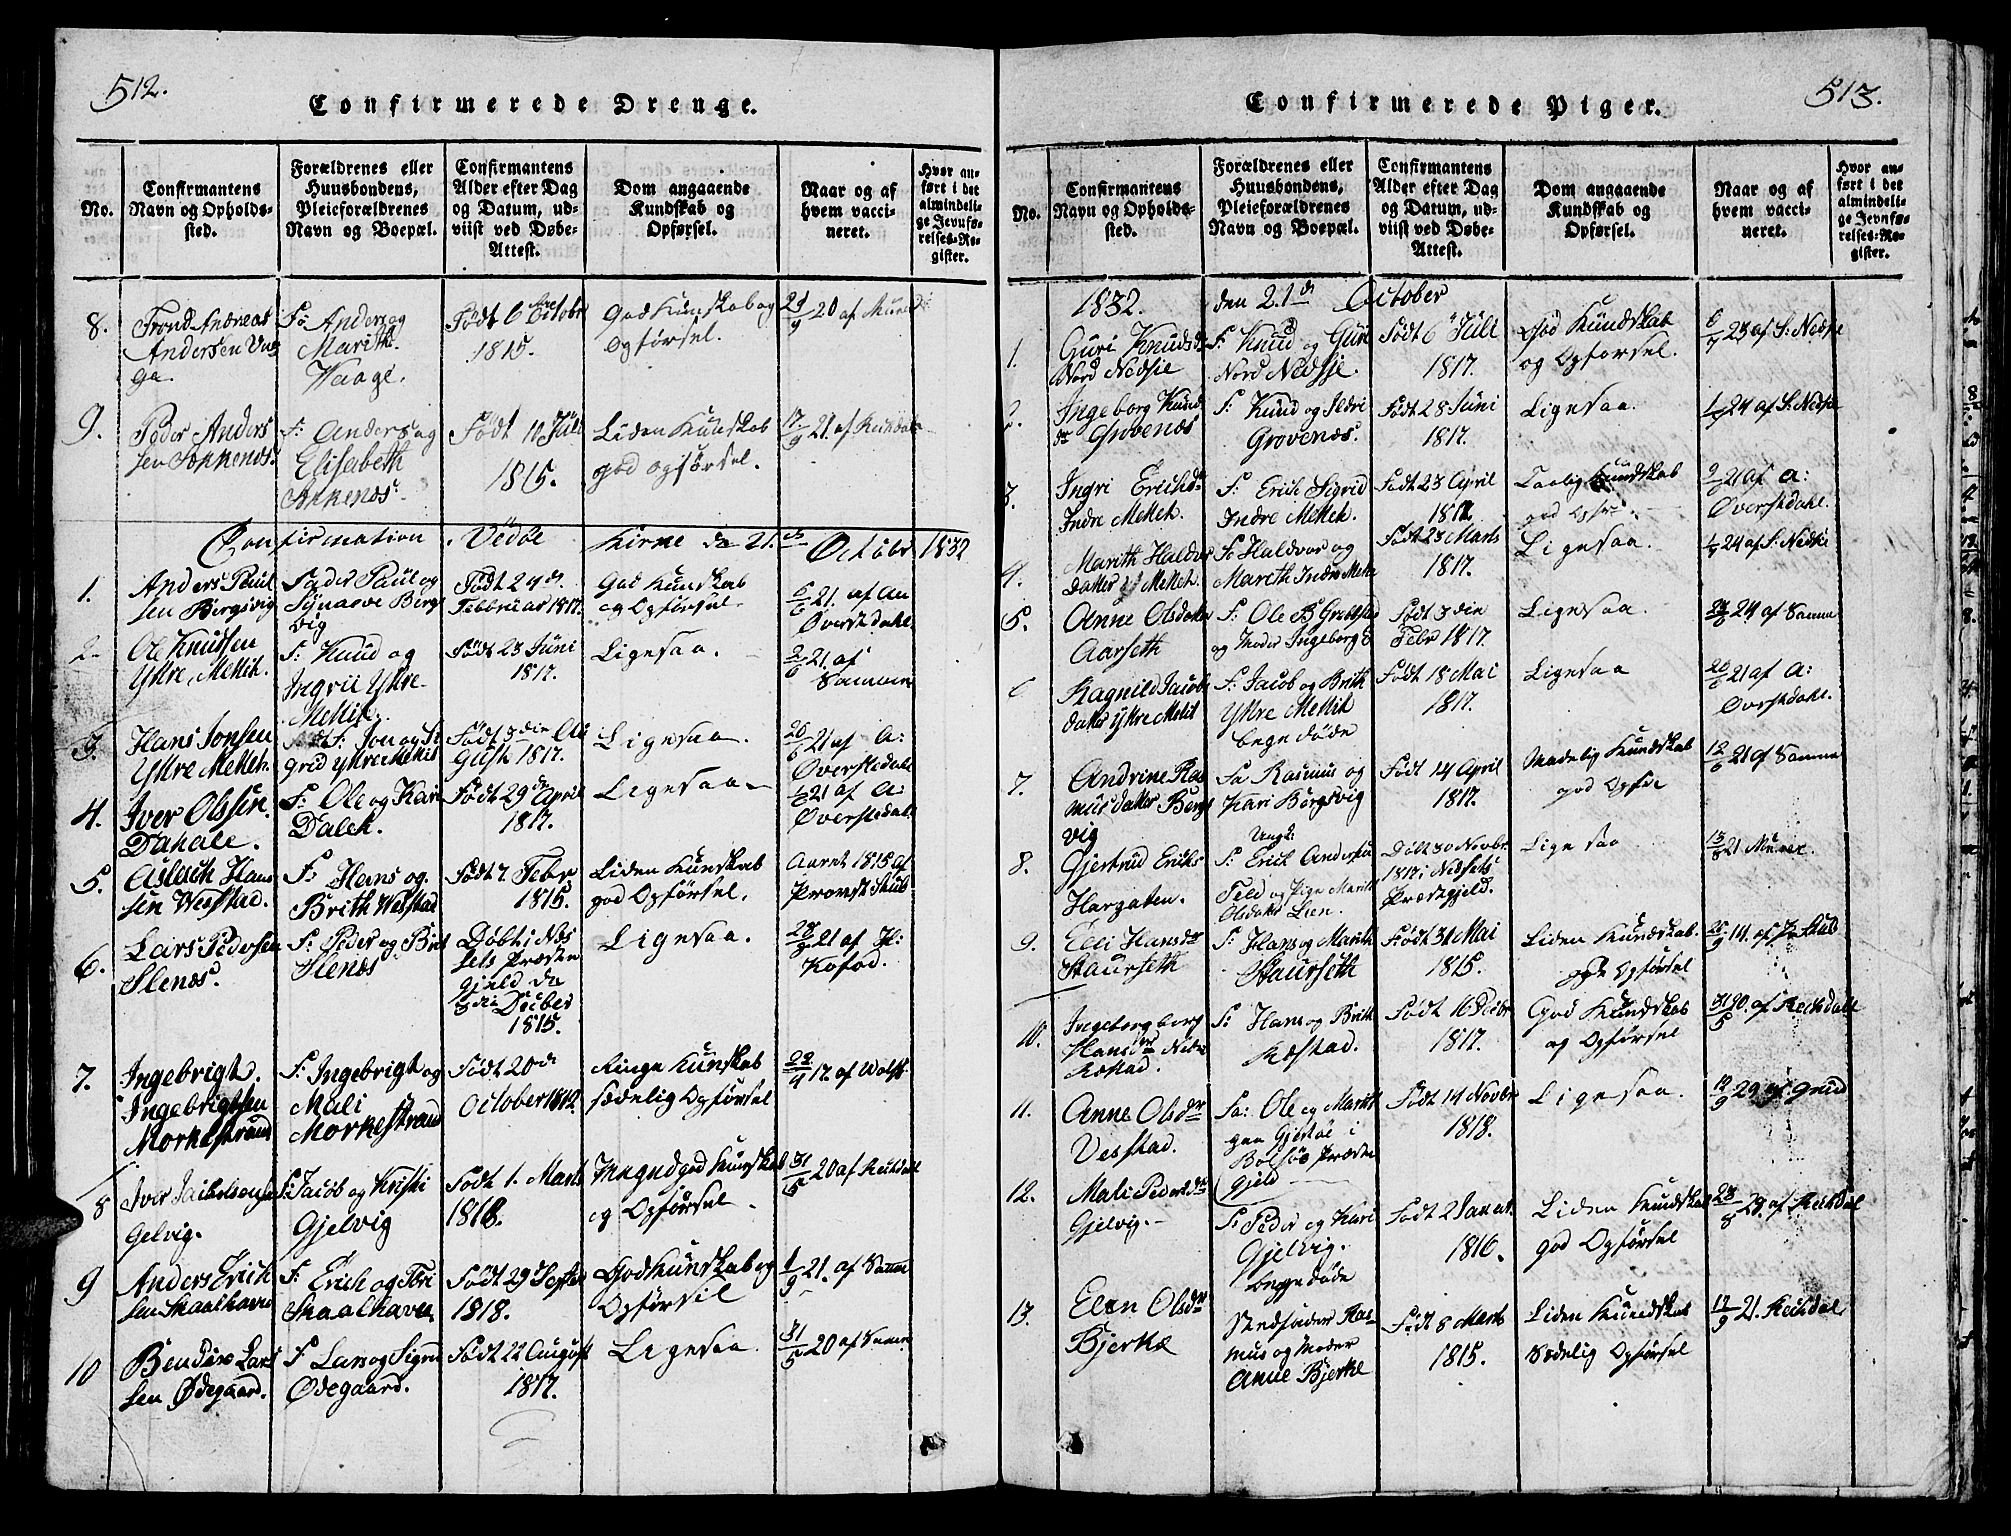 512.
Confirmerede Drenge.
No.
Confirmantens
Navn og Opholds-
sted.
Forældrenes eller
Huusbondens,
Pleieforældrenes
Navn og Boepæl.
Confirmantens
Alder efter Dag
og Datum, ud-
viist ved Døbe-
Attest.
Dom angaaende
Kundskab og
Opførsel.
Naar og af
hvem vacci-
neret.
Hvor an-
ført i det
almindeli-
ge Jevnfø-
relses-Re-
gister.
8.
Trond Andreas
Andersen Vaa
ge.
Anders og
Marith
Vaage.
Født 6 October
1815.
God Kunskab og
Opførsel.
20 af
9.
Peder Anders
sen
F: Anders og
Elisabeth
Født 10 Juli
1815.
Liden Kunskab
god opførsel.
17/9 21. af
Confirmation Vedøe Kirke d 21. October 1832
1.
Anders Paul
sen Bergsvig
Fader Paul og
Synnøve Bergs
vig
Født 24 d.
Februar 1817.
God Kunskab
og Opførsel
21. af An
Øverstdahl
2.
Ole Knudsen
Yttre Mettet.
F: Knud og
Ingrii Yttre
Mettet.
Født 23 Juni
1817.
Ligesaa.
21. af
Samme
3.
Hans Jonsen
Yttre Mettet.
F: Jon og Si
grid Yttre Mettet
Født 3 die Au
gust 1817.
Ligesaa.
26/6 21 af A:
Øverstedahl
4.
Iver Olsen
Dahale.
F: Ole og Kari
Født 29 d. April
1817.
Ligesaa
21 af A:
Øverstedahl
5.
Aslach Han
sen Westad.
F: Hans og
Brith Westad
Født 7. Febr
1815.
Liden Kunskab
god Opførsel.
Aaret 1815 af
Provst
6.
Lars Pedersen
Slenæs.
F: Peder og Brit
Slenæs
Døbt i Næs
sets Præste
gjeld
1815.
Ligesaa.
21 af H:
Kofod.
7.
Ingebrigt
Ingebrigtsen
Morkestrand
F: Ingebrigt og
Mali
Morkestrand
Født 20 d.
October 1812
Ringe Kunskab
sædelig Opførsel
17. af Wolf
8
Iver
Gelvig.
F: Jacob og
Gjelvig
Født 1. Marts
1818.
Meget god Kunskab
og Opførsel
31/5 20 af
9
Anders Erich
sen Skaalhavn
F: Erich og
Skaalhavn
Født 29 d Septbr
1818.
God Kunskab og
Opførsel
1/9 21. af Samme
10
Bendix Lars
sen Ødegaard.
F Lars og Signe
Ødegaard.
Født 22 August
1817.
Ligesaa
31/5 20 af Samme
513.
Confirmerede Piger.
No.
Confirmantens
Navn og Opholds-
sted.
Forældrenes eller
Huusbondens,
Pleieforældrenes
Navn og Boepæl.
Confirmantens
Alder efter Dag
og Datum, ud-
viist ved Døbe-
Attest.
Dom angaaende
Kundskab og
Opførsel.
Naar og af
hvem vacci-
neret.
Hvor an-
ført i det
almindeli-
ge Jevnfø-
relses-Re-
gister.
1832. den 21 d. October
1.
Guri Knudsdr
Nord Nedsie
F: Knud og Guri
Nord Nedsje.
Født 6 Juli
1817.
God Kundskab
og Opførsel.
23 af S: Nedsie
2.
Ingeborg Knud
dr Grovenæs
F: Knud og Ildri
Grovenæs.
Født 28 Juni
1817.
Ligesaa.
24 af S: Nedsie
3.
Ingri Erichsdr
Indre Mettet.
F: Erich Sigrid
Indre Mettet.
Født 23 April
Taalig Kundskab
god Opfø
21 af A:
Øverstdahl.
4.
Marith Haldor
datter Mettet.
F: Haldvor og
Marith Indre Mette
Født 23 Marts
1817.
Ligesaa.
24 af S: Nedsie
5.
Anne Olsdatter
Aarseth
F: Ole
og Moder Ingeborg
Født 3 die
Febr 1817.
Ligesaa.
24 af Samme
6
Ragnild Jacobs
datter Yttre Mettet
F: Jacob og Brith
Yttre Mettet
begge døde
Født 18 Mai
1817.
Ligesaa
21 af A:
Øverstdahl.
7.
Andrine Ras
musdatter Bergs
vig
Fa Rasmus og
Kari Bergsvig
Født 14 April
1817.
Maadelig Kundskab
god Opfø
21 af Samme
8.
Gjertrud Erichs
Hargaten.
Ungk:
F: Erich Andersen
Feld og Pige Marith
Olsdatter Lien.
Født 30 Novbr
1817 i Nedsets
Præstgjeld.
Ligesaa
21
9.
Elli Hansdr
Staurseth
F: Hans og Marith
Staurseth
Født 31 Mai
1815.
Liden Kundskab.
god Opførsel
10.
Ingeborg
Hansdr
F: Hans og Brith
Født 16 Decbr
1817.
God Kundskab
og Opførsel
31/5 20. af
11.
Anne Olsdr
Vestad.
Fa: Ole og Marith
paa Gjerstøe i
Bolsøe Præste
gjeld
Født 14 Novbr
1818.
Ligesaa.
12.
Mali Pedersdr
Gjelvig.
F: Peder og Kari
Gjelvig.
begge døde
Født 2 Januar.
1816.
Liden Kundskab
god Opførsel
13.
Elen Olsdr
Bjerke
Stedfader Ras-
mus og Moder
Anne Bjerke
Født 8 Marts
1815.
Liden Kundskab
Sædelig Opførsel
21.